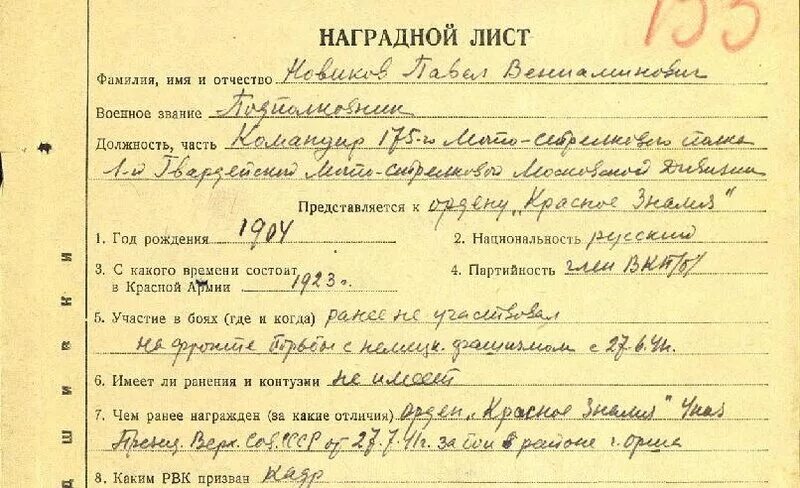 155
НАГРАДНОЙ ЛИСТ
Фамилия, имя и отчество Новиков Павел Вениаминович
Военное звание Подполковник
Должность, часть Командир 175-го Мото-стрелкового полка
1-й Гвардейской Мото-стрелковой Московской Дивизии
Представляется к ордену „Красное Знамя"
1. Год рождения 1904 2. Национальность русский
3. С какого времени состоит
в Красной Армии 1923 г. 4. Партийность член ВКП/б/
5. Участие в боях (где и когда) ранее не участвовал
на фронте борьбы с немецк. фашизмом с 27.6.41г.
6. Имеет ли ранения и контузии не имеет
7. Чем ранее награжден (за какие отличия) орден „Красное Знамя" Указ
През. Верх. Сов. СССР от 27.7.41г. за бои в районе г. Орша
8. Каким РВК призван Кадр
д ш и в к и